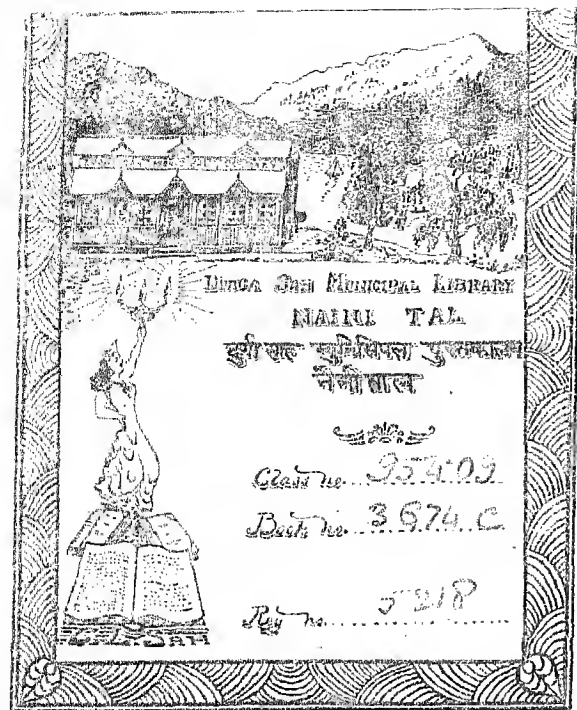 DURGA SAH MUNICIPAL LIBRARY
NAINI TAL
दुर्गा साह म्युनिसिपल पुस्तकालय
नैनीताल
Class no. 954.09
Book no. B674C
Reg no. 5218